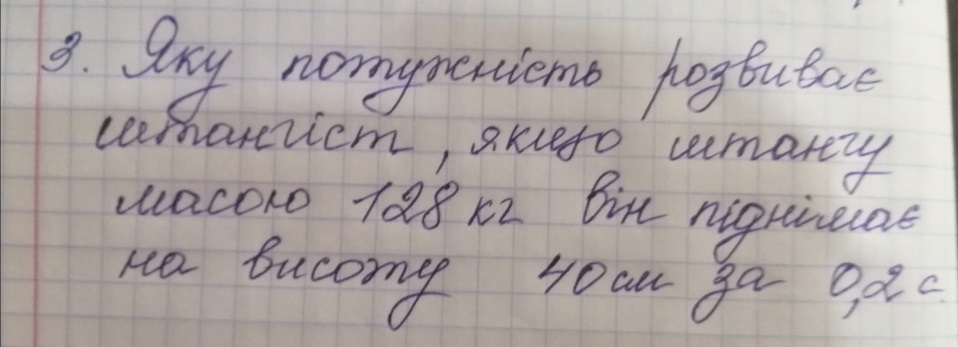 3. Яку потужність розвиває
штангіст, якщо штангу
масою 128 кг він піднімає
на висоту 40 см за 0,2 с.